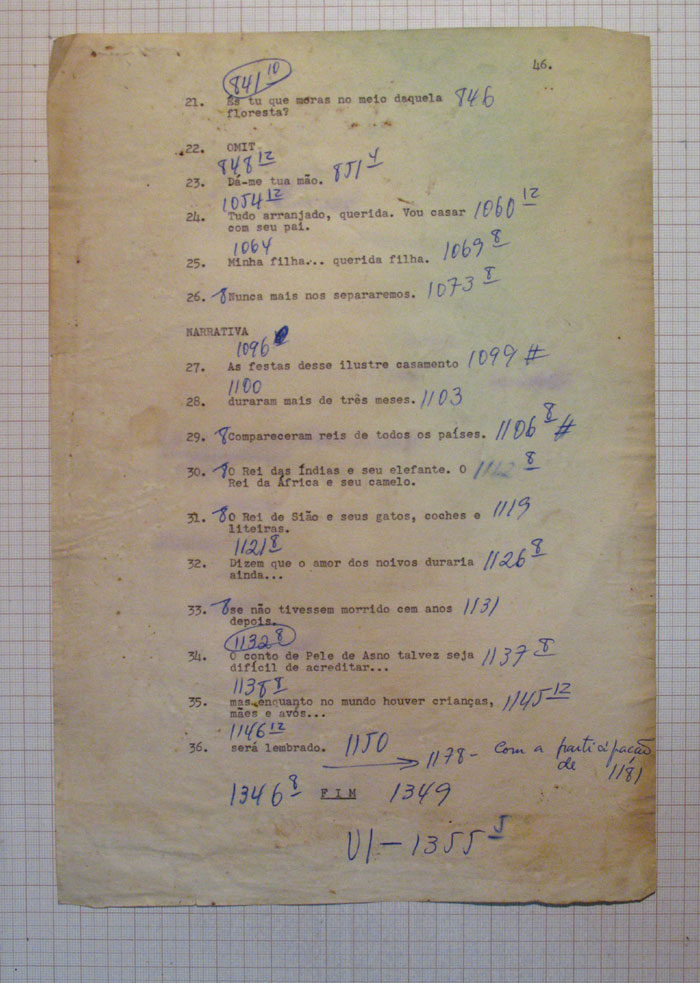 841 10 46.
21. És tu que moras no meio daquela 846
floresta?
22. OMIT
848 12
23. Dá-me tua mão. 851 4
1054 12
24. Tudo arranjado, querida. Vou casar 1060 12
com seu pai.
1064
25. Minha filha... querida filha. 1069 8
26. 8 Nunca mais nos separaremos. 1073 8
NARRATIVA
1096
27. As festas desse ilustre casamento 1099 #
1100
28. duraram mais de três meses. 1103
29. 8 Compareceram reis de todos os países. 1106 8 #
30. 8 O Rei das Índias e seu elefante. O 8
Rei da África e seu camelo.
31. 8 O Rei de Sião e seus gatos, coches e 1119
liteiras.
1121 8
32. Dizem que o amor dos noivos duraria 1126 8
ainda...
33. 8 se não tivessem morrido cem anos 1131
depois.
1132 8
34. O conto de Pele de Asno talvez seja 1137 8
difícil de acreditar...
1138 8
35. mas enquanto no mundo houver crianças, 1145 12
mães e avós...
1146 12
36. será lembrado. 1150
1178 - Com a participação
de 1181
1346 8 F I M 1349
UI - 1355 5